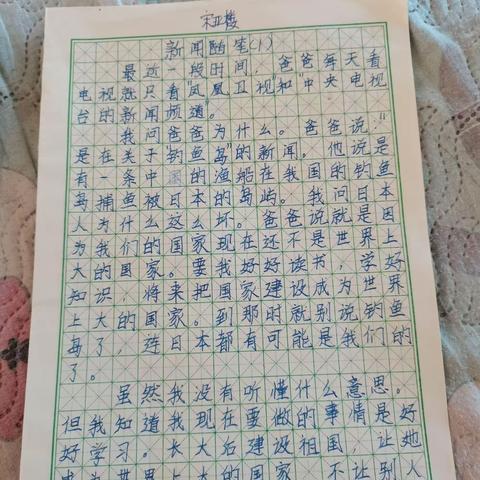 宋亚楼
新闻随笔(1)
最近一段时间，爸爸每天看
电视就只看"凤凰卫视"和"中央电视
台的新闻频道"。
我问爸爸为什么。爸爸说："
是在关于"钓鱼岛"的新闻。他说是
有一条中国的渔船在我国的钓鱼
岛捕鱼被日本的岛屿。我问日本
人为什么这么坏。爸爸说就是因
为我们的国家现在还不是世界上
大的国家。要我好好读书，学好
知识，将来把国家建设成为世界
上大的国家。到那时就别说钓鱼
岛了，连日本都有可能是我们的
了。
虽然我没有听懂什么意思。
但我知道我现在要做的事情是好
好学习。长大后建设祖国，让她
成为世界上大的国家 不让别人